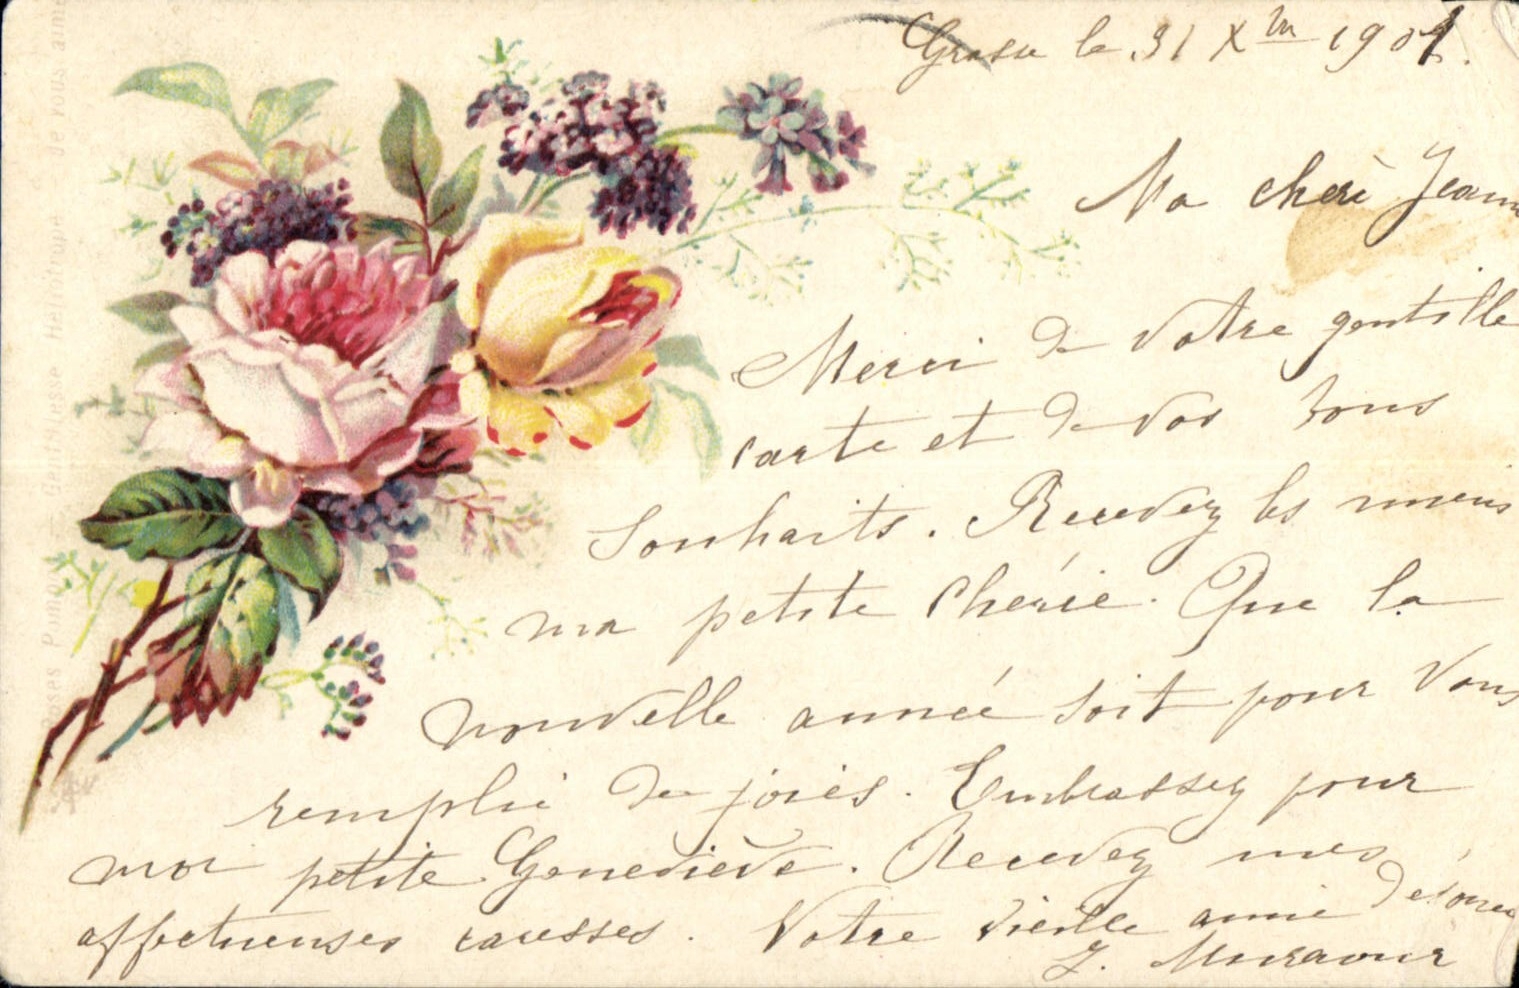 Grasse le 31 Xbre 1901.
Ma cherè Jeann
Merci de votre gentille
carte et de vos bons
souhaits. Recevez les miens
ma petite cherie. Que la
nouvelle année soit pour vous
remplie de joies. Embrassez pour
moi petite Geneviève. Recevez mes
affectueuses caresses. Votre vieille amie
Roses Pimp Gentillesse Héliotrope - Je vous aime